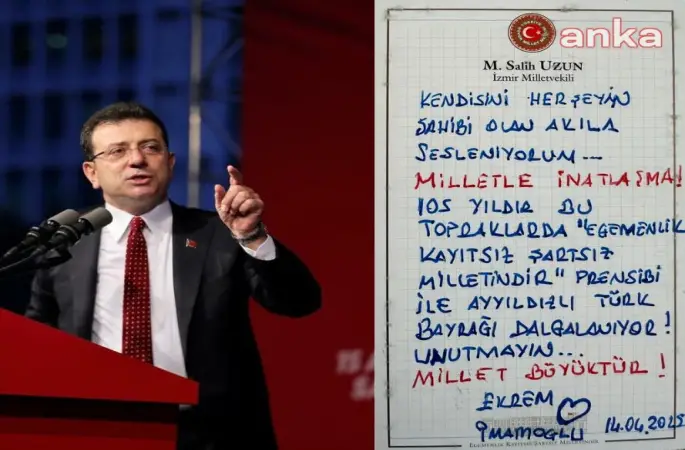 anka
M. Salih UZUN
İzmir Milletvekili
KENDİSİNİ HERŞEYİN
SAHİBİ OLAN AKILA
SESLENİYORUM...
MİLLETLE İNATLAŞMA!
105 YILDIR BU
TOPRAKLARDA "EGEMENLİK
KAYITSIZ ŞARTSIZ
MİLLETİNDİR" PRENSİBİ
İLE AYYILDIZLI TÜRK
BAYRAĞI DALGALANIYOR!
UNUTMAYIN...
MİLLET BÜYÜKTÜR!
EKREM
İMAMOĞLU 14.04.2025
EGEMENLİK KAYITSIZ ŞARTSIZ MİLLETİNDİR
15